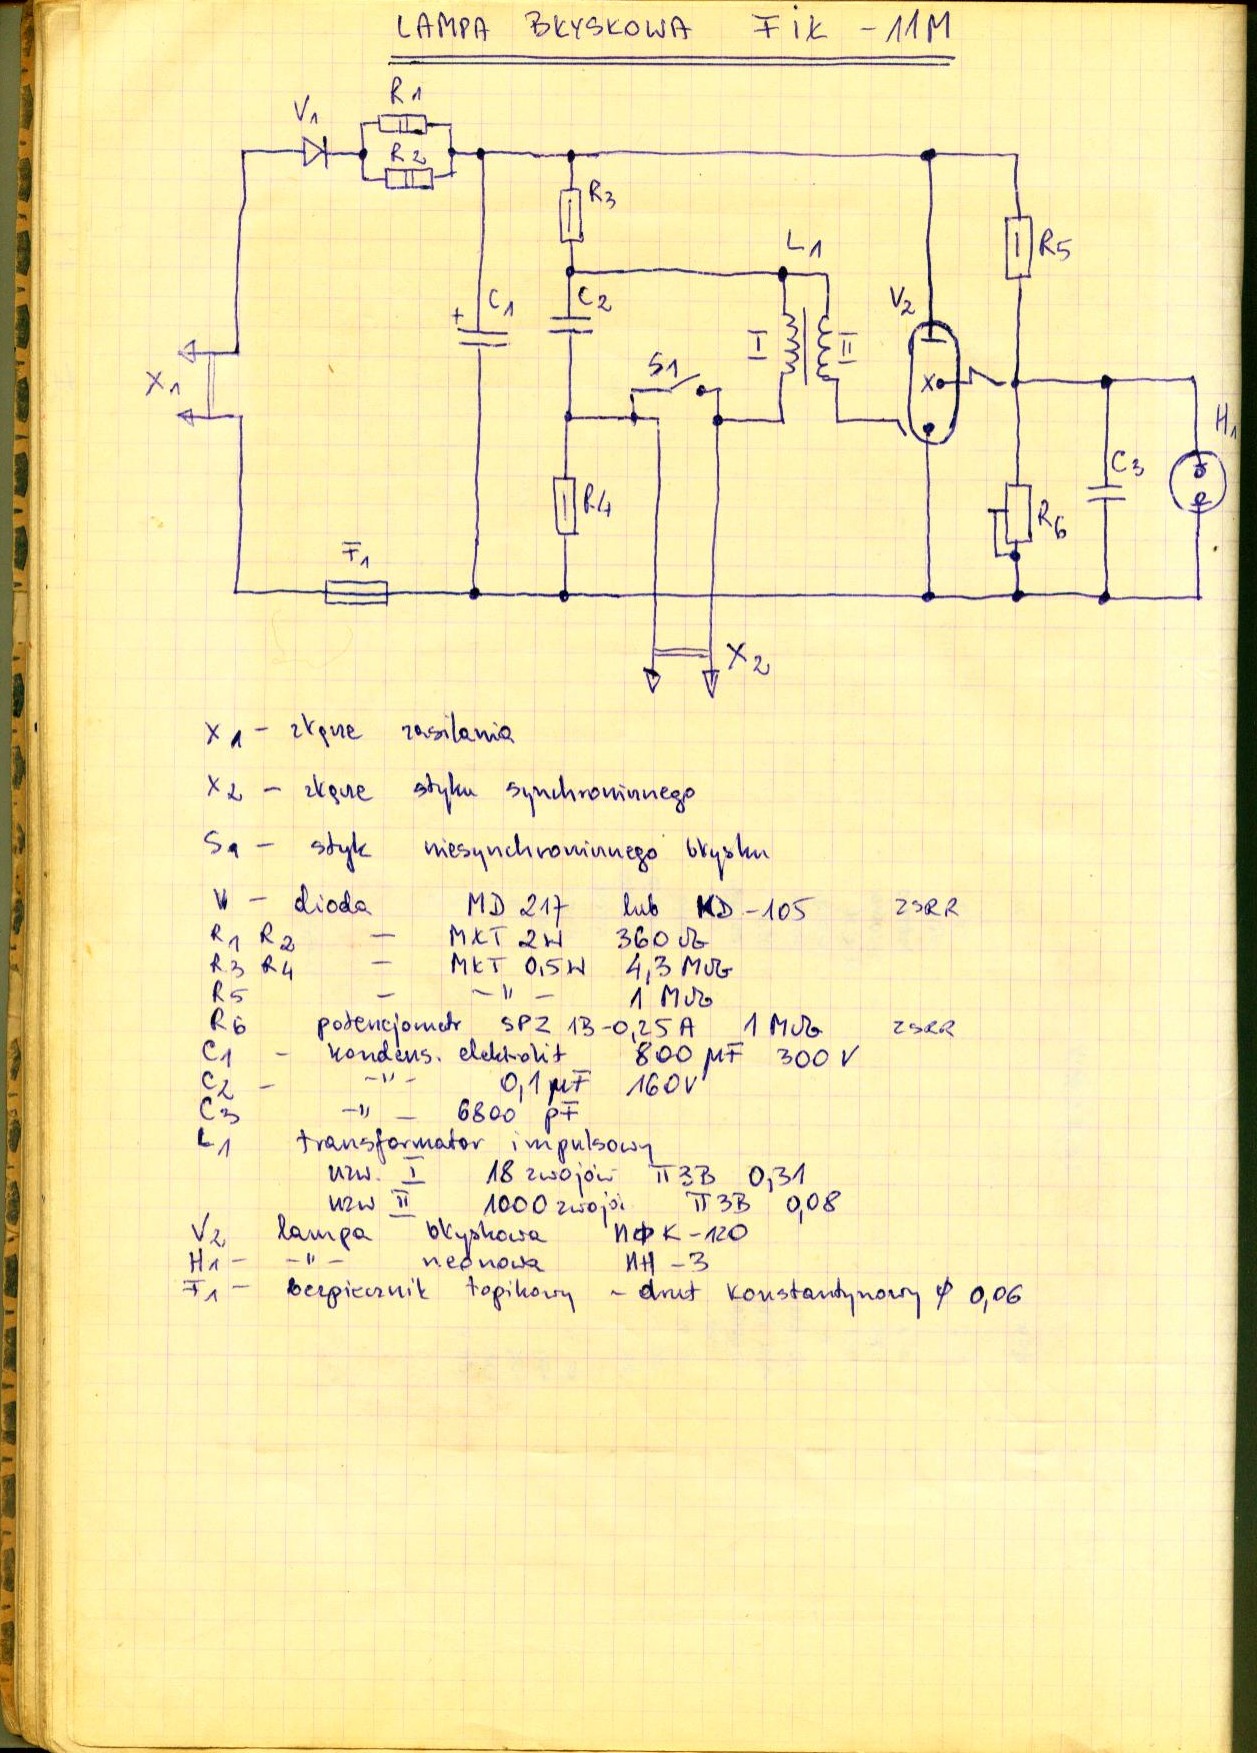 LAMPA BŁYSKOWA FIK - 11M
V1
R1
R2
R3
L1
R5
C1
+
C2
V2
S1
I
II
X1
H1
C3
R4
R6
F1
X2
X1 - złącze zasilania
X2 - złącze styku synchronicznego
S1 - styk niesynchronicznego błysku
V - dioda MD 217 lub KD-105 ZSRR
R1 R2 - MŁT 2W 360 Ω
R3 R4 - MŁT 0,5W 4,3 MΩ
R5 - -"- 1 MΩ
R6 potencjometr SPZ 1B-0,25A 1 MΩ ZSRR
C1 - kondens. elektrolit 800 µF 300 V
C2 - -"- 0,1 µF 160V
C3 -"- 6800 pF
L1 transformator impulsowy
uzw. I 18 zwojów ПЭВ 0,31
uzw II 1000 zwoji ПЭВ 0,08
V2 lampa błyskowa ИФК-120
H1 - -"- neonowa ИН-3
F1 - bezpiecznik topikowy - drut konstantynowy ϕ 0,06